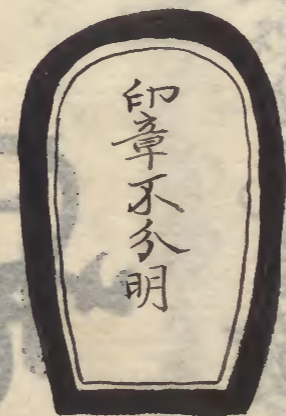 印章不分明